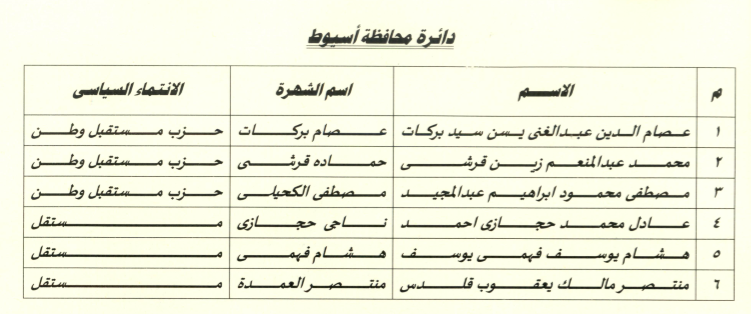 دائرة محافظة أسيوط
م الاسم اسم الشهرة الانتماء السياسى
١ عصام الدين عبدالغنى يسن سيد بركات عصام بركات حزب مستقبل وطن
٢ محمد عبدالمنعم زين قرشى حماده قرشى حزب مستقبل وطن
٣ مصطفى محمود ابراهيم عبدالمجيد مصطفى الكحيلى حزب مستقبل وطن
٤ عادل محمد حجازى احمد ناجى حجازى مستقل
٥ هشام يوسف فهمى يوسف هشام فهمى مستقل
٦ منتصر مالك يعقوب قلدس منتصر العمدة مستقل